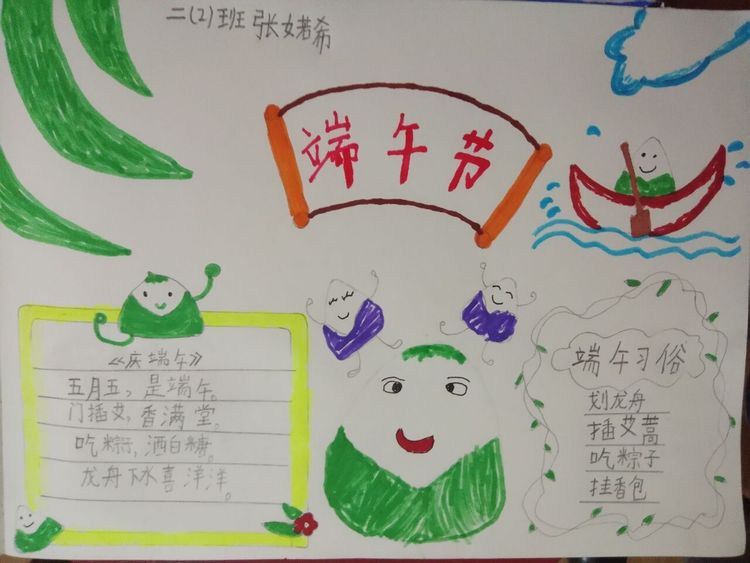 二(2)班 张婼希
端午节
《庆端午》
五月五，是端午。
门插艾，香满堂。
吃粽，洒白糖。
龙舟下水喜洋洋。
端午习俗
划龙舟
插艾蒿
吃粽子
挂香包